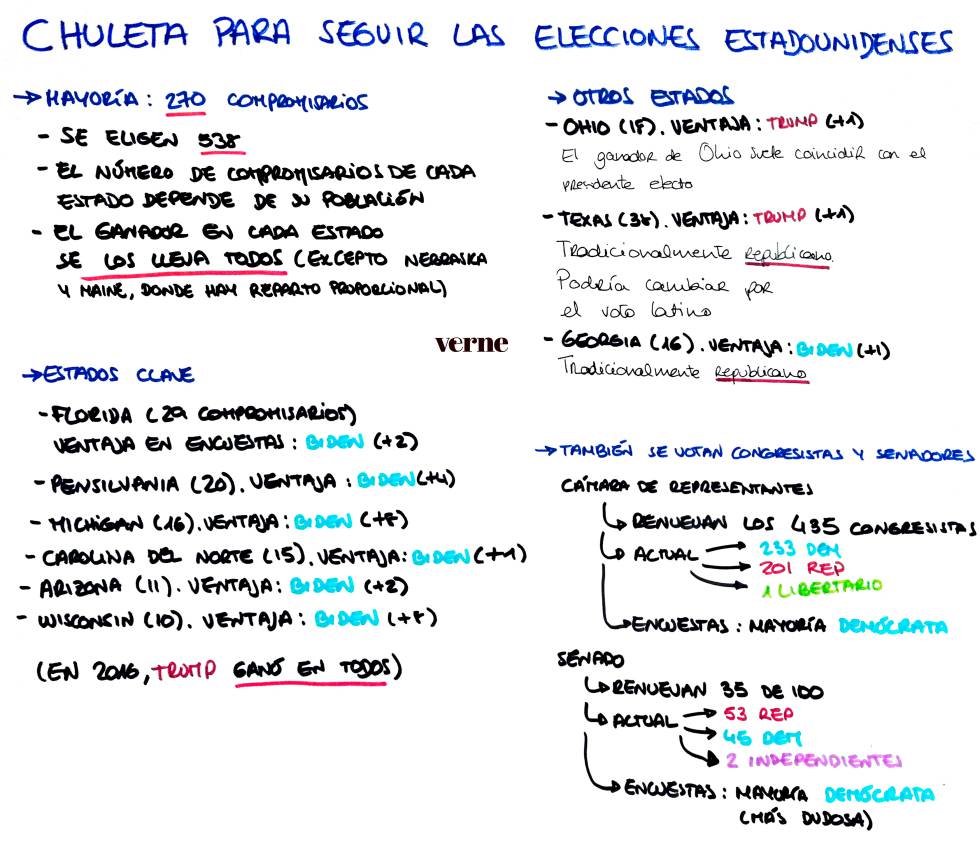 CHULETA PARA SEGUIR LAS ELECCIONES ESTADOUNIDENSES
→ MAYORÍA: 270 COMPROMISARIOS
- SE ELIGEN 538
- EL NÚMERO DE COMPROMISARIOS DE CADA
ESTADO DEPENDE DE SU POBLACIÓN
- EL GANADOR EN CADA ESTADO
SE LOS LLEVA TODOS (EXCEPTO NEBRASKA
Y MAINE, DONDE HAY REPARTO PROPORCIONAL)
verne
→ ESTADOS CLAVE
- FLORIDA (29 COMPROMISARIOS)
VENTAJA EN ENCUESTAS: BIDEN (+2)
- PENSILVANIA (20). VENTAJA: BIDEN (+4)
- MICHIGAN (16). VENTAJA: BIDEN (+8)
- CAROLINA DEL NORTE (15). VENTAJA: BIDEN (+1)
- ARIZONA (11). VENTAJA: BIDEN (+2)
- WISCONSIN (10). VENTAJA: BIDEN (+8)
(EN 2016, TRUMP GANÓ EN TODOS)
→ OTROS ESTADOS
- OHIO (18). VENTAJA: TRUMP (+1)
El ganador de Ohio suele coincidir con el
presidente electo
- TEXAS (38). VENTAJA: TRUMP (+1)
Tradicionalmente republicano.
Podría cambiar por
el voto latino
- GEORGIA (16). VENTAJA: BIDEN (+1)
Tradicionalmente republicano
→ TAMBIÉN SE VOTAN CONGRESISTAS Y SENADORES
CÁMARA DE REPRESENTANTES
RENUEVAN LOS 435 CONGRESISTAS
ACTUAL → 233 DEM
→ 201 REP
→ 1 LIBERTARIO
ENCUESTAS: MAYORÍA DEMÓCRATA
SENADO
RENUEVAN 35 DE 100
ACTUAL → 53 REP
→ 45 DEM
→ 2 INDEPENDIENTES
ENCUESTAS: MAYORÍA DEMÓCRATA
(MÁS DUDOSA)